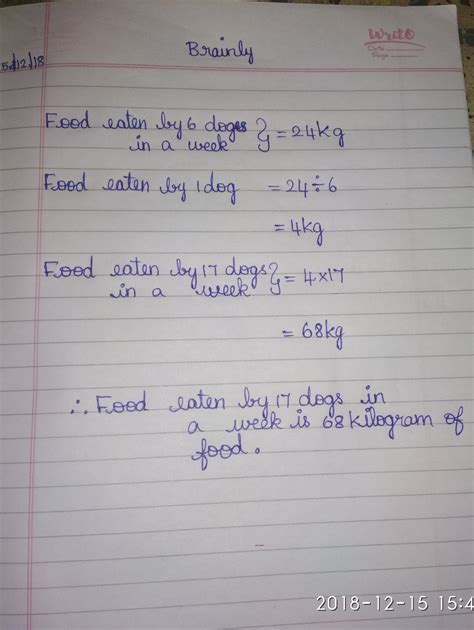 Write
Date
Page
Brainly
5/12/18
Food eaten by 6 dogs } = 24kg
in a week
Food eaten by 1 dog = 24÷6
= 4kg
Food eaten by 17 dogs } = 4×17
in a week
= 68kg
∴ Food eaten by 17 dogs in
a week is 68 kilogram of
food.
2018-12-15 15:4